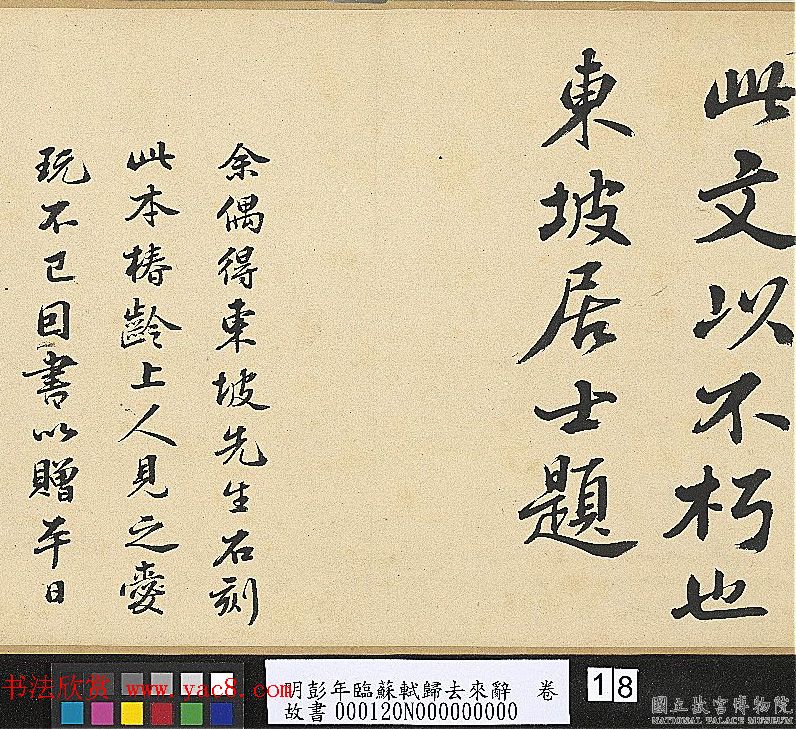 此文以不朽也
東坡居士題
余偶得東坡先生石刻
此本椿齡上人見之愛
玩不已因書以贈平日
明彭年臨蘇軾歸去來辭 卷
故書000120N000000000
18
书法欣赏 www.yac8.com
國立故宮博物院
NATIONAL PALACE MUSEUM